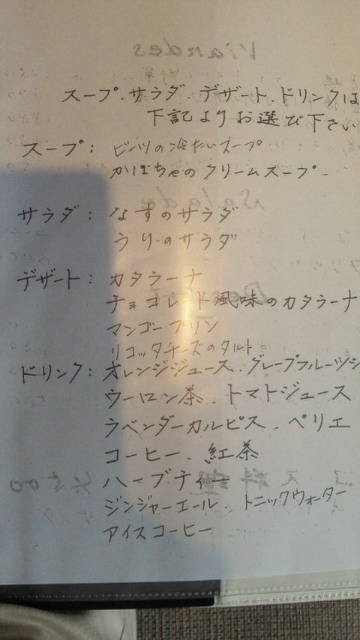 スープ.サラダ.デザート.ドリンクは
下記よりお選び下さい
スープ: ビーツの冷たいスープ
かぼちゃのクリームスープ.
サラダ: なすのサラダ
うりのサラダ
デザート: カタラーナ
チョコレート風味のカタラーナ
マンゴープリン
リコッタチーズのタルト。
ドリンク: オレンジジュース.グレープフルーツジ
ウーロン茶.トマトジュース
ラベンダーカルピス.ペリエ
コーヒー.紅茶
ハーブティー
ジンジャーエール.トニックウォーター
アイスコーヒー